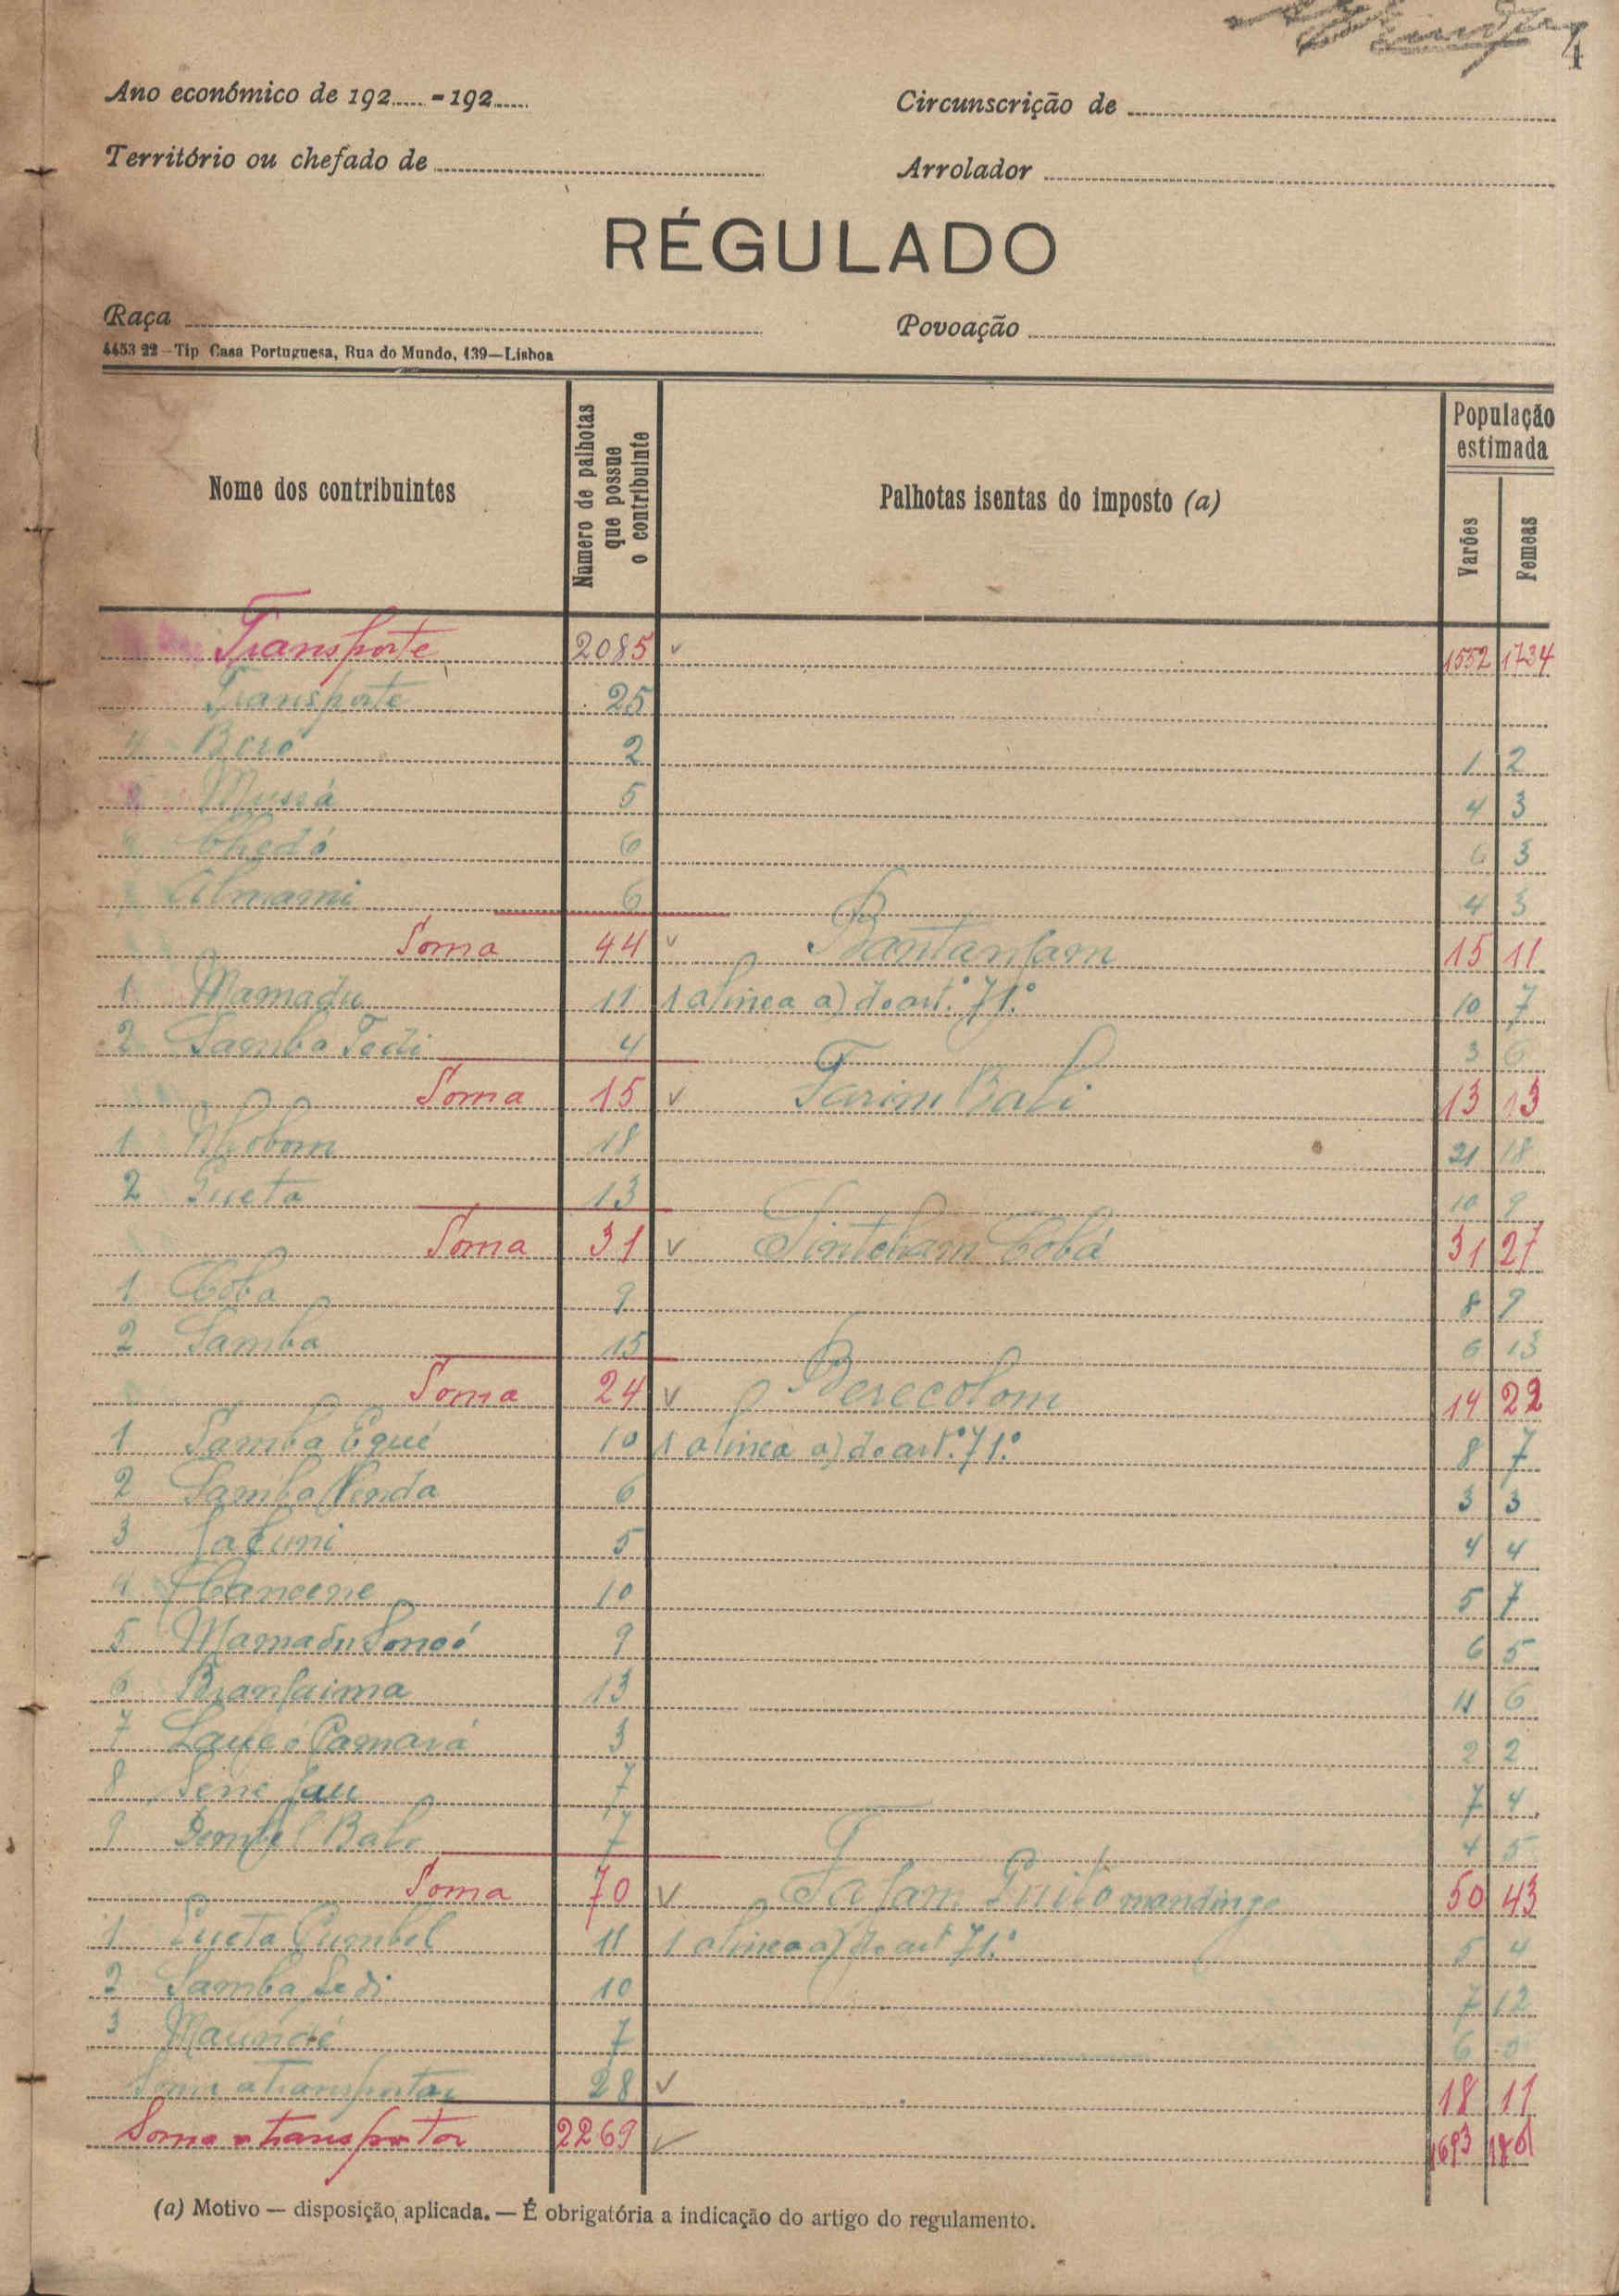 4
Ano económico de 192..... - 192.....
Circunscrição de
Território ou chefado de
Arrolador
RÉGULADO
Raça
Povoação
4453 22 — Tip Casa Portuguesa, Rua do Mundo, 139 — Lisboa
Nome dos contribuintes
Número de palhotas que possue o contribuinte
Palhotas isentas do imposto (a)
População estimada
Varões
Femeas
Transporte 2085 1552 1734
Transporte 25
4 Beró 2 1 2
Mussá 5 4 3
Chedó 6 6 3
Almami 6 4 3
Soma 44 Bantanjam 15 11
1 Mamadu 11 1 alinea a) do art.º 71.º 10 7
2 Samba Tedi 4 3 6
Soma 15 13 13
1 18 21 18
2 Sueta 13 10 9
Soma 31 Sintcham Cobá 31 27
1 Coba 9 8 9
2 Samba 15 6 13
Soma 24 Berecolom 14 22
1 Samba Egué 10 1 alinea a) do art.º 71.º 8 7
2 Samba Penda 6 3 3
3 5 4 4
4 10 5 7
5 Mamadu 9 6 5
6 13 11 6
7 Camará 3 2 2
8 Sene Jau 7 7 4
9 Dembel Baló 7 4 5
Soma 70 mandinga 50 43
1 Sueta 11 1 alinea a) do art 71.º 5 4
2 Samba Sedi 10 7 12
3 Maundé 7 6
Soma a transportar 28 18 11
Soma a transportar 2269 1693
(a) Motivo — disposição aplicada. — É obrigatória a indicação do artigo do regulamento.